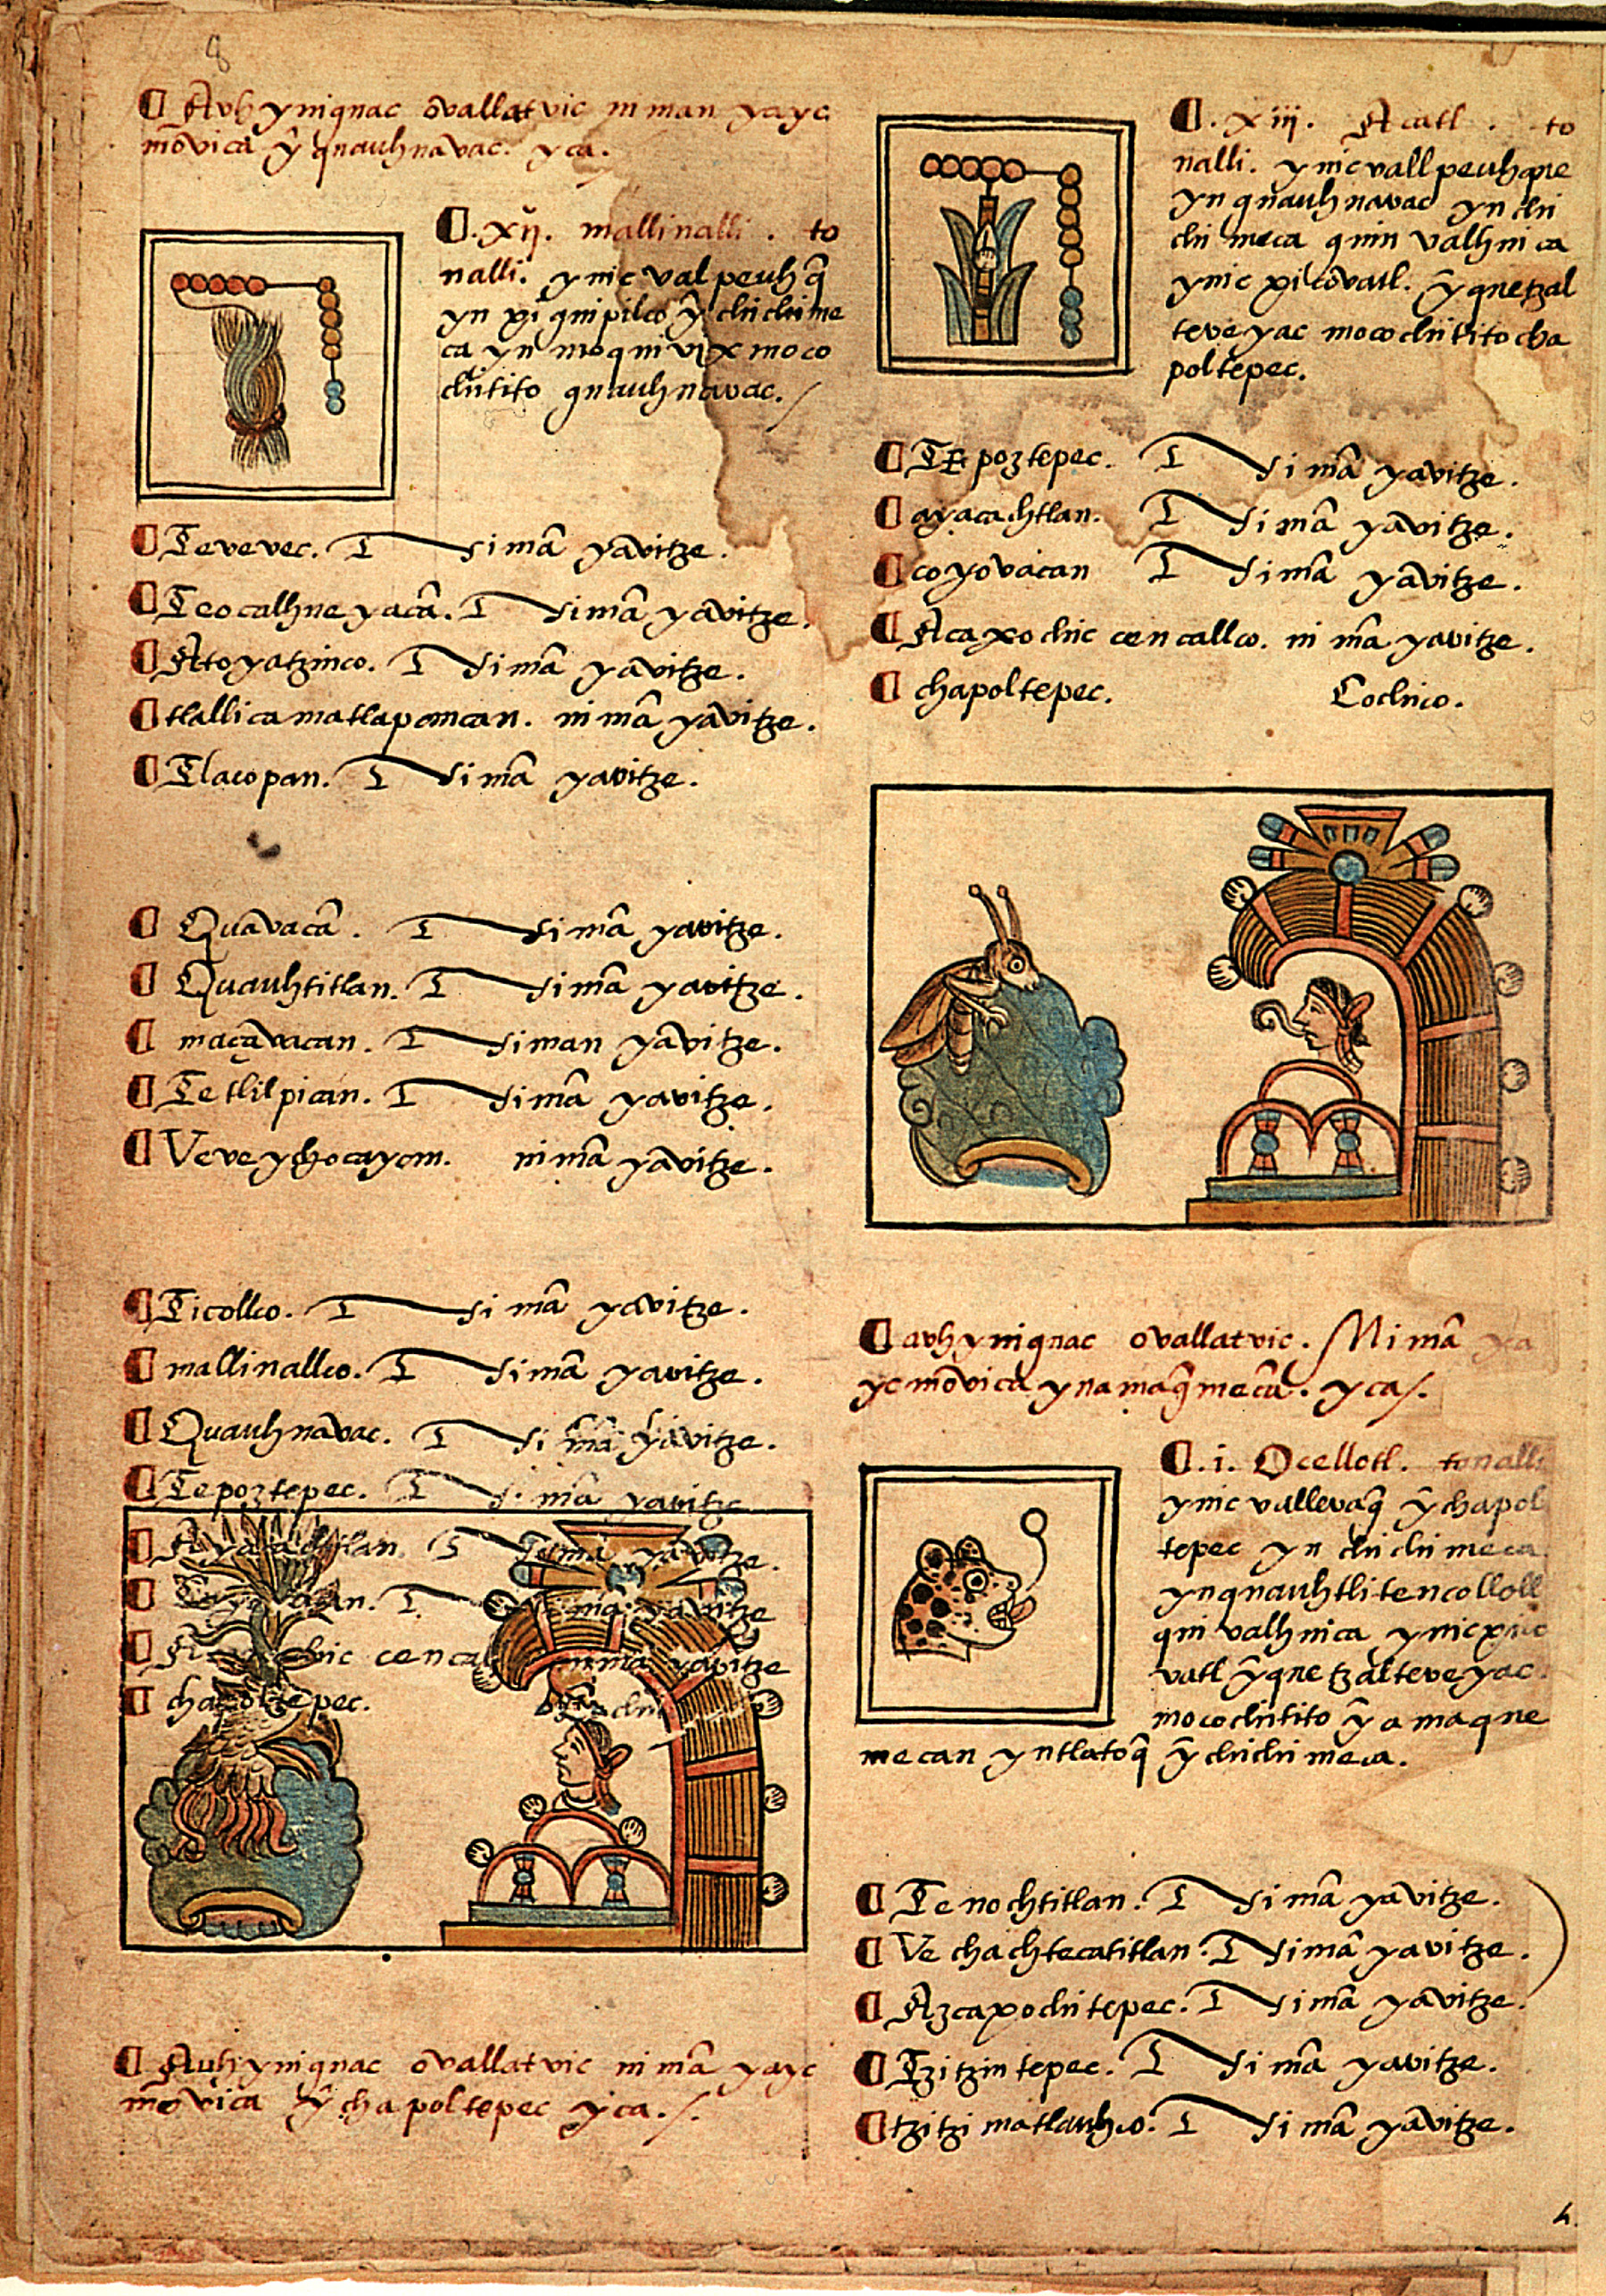 8
Auh yniquac ōvallatvic niman yayc
mōvica ȳ quauhnavac. yca.
.xij. mallinalli. to
nalli. ynic valpeuhq̄
yn xiquipilco ȳ chichime
ca yn moquivix moco
chitito quauhnavac.
Tevevec. Nimā yāvitze.
Teocalhueyacā. Nimā yāvitze.
Atoyatzinco. Nimā yāvitze.
tlallicamatlapancan. nimā yāvitze.
Tlacopan. Nimā yavitze.
Quāvacā. Nimā yavitze.
Quauhtitlan. Nimā yavitze.
maçāvacan. Niman yāvitze.
Tetlilpican. Nimā yavitze.
Veveychocayom. nimā yāvitze.
Ticollco. Nimā yavitze.
mallinallco. Nimā yavitze.
Quauhnāvac. Nimā yāvitze.
Tepoztepec. Nimā yavitze
nimā yavitze.
yavitze
cenca nimā yavitze
chapoltepec.
Auh yniquac ōvallatvic nimā yayc
mōvica ȳ chapoltepec yca.
.xiij. Acatl. to
nalli. ynic vallpeuhque
yn quauhnavac yn chi
chimeca quin valhuica
ynic xiicōvatl. ȳ quetzal
teveyac mocochitito cha
poltepec.
Tepoztepec. Nimā yavitze.
ayacachtlan. Nimā yāvitze.
coyovacan Nimā yāvitze.
Acaxochic cencallco. nimā yavitze.
chapoltepec. Cochico.
auh yniquac ovallatvic. Nimā ya
yc mōvica yn amaq̄mecā. yca.
.i. Ocellotl. tonalli
ynic vallevaq̄ ȳ chapol
tepec yn chichimeca
yn quauhtlitencolloll
qui valhuica ynic xiico
vatl ȳ quetzalteveyac.
mocochitito ȳ amaque
mecan yn tlatoq̄ ȳ chichimeca.
Tenochtitlan. Nimā yāvitze.
Vechachtecatitlan. Nimā yavitze.
Azcapochitepec. Nimā yāvitze.
Tzitzintepec. Nimā yavitze.
tzitzimatlauhco. Nimā yāvitze.
4.